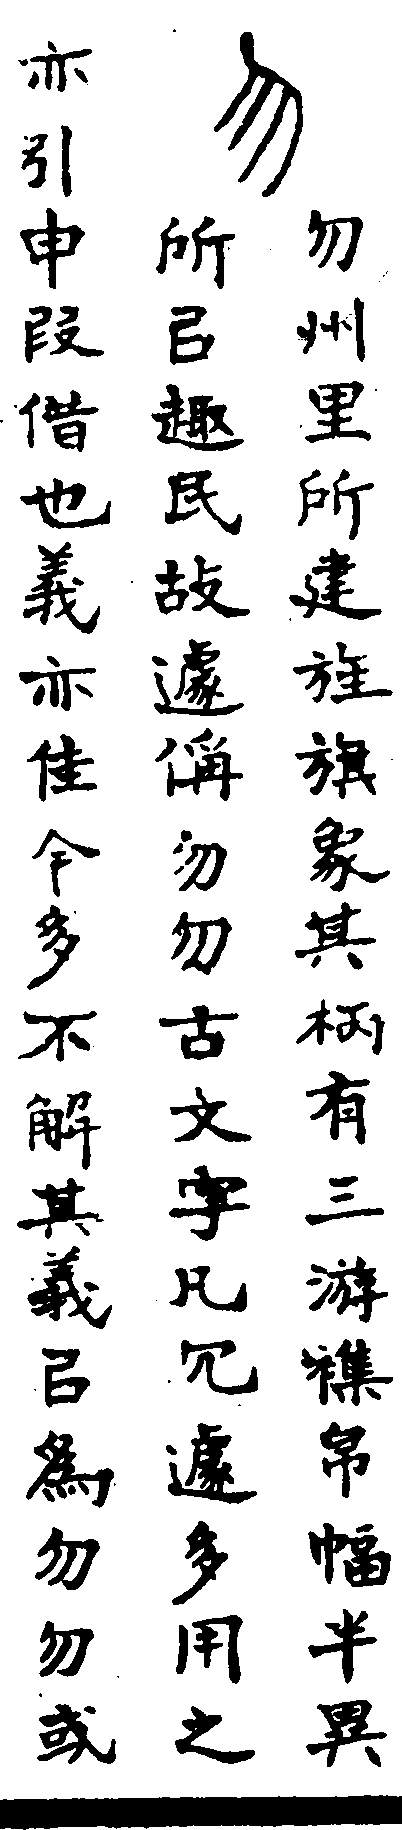 勿
勿州里所建旌旗象其柄有三游襍帛幅半異
所㠯趣民故遽偁勿勿古文字凡冗遽多用之
亦引申叚借也義亦佳今多不解其義㠯爲勿勿或